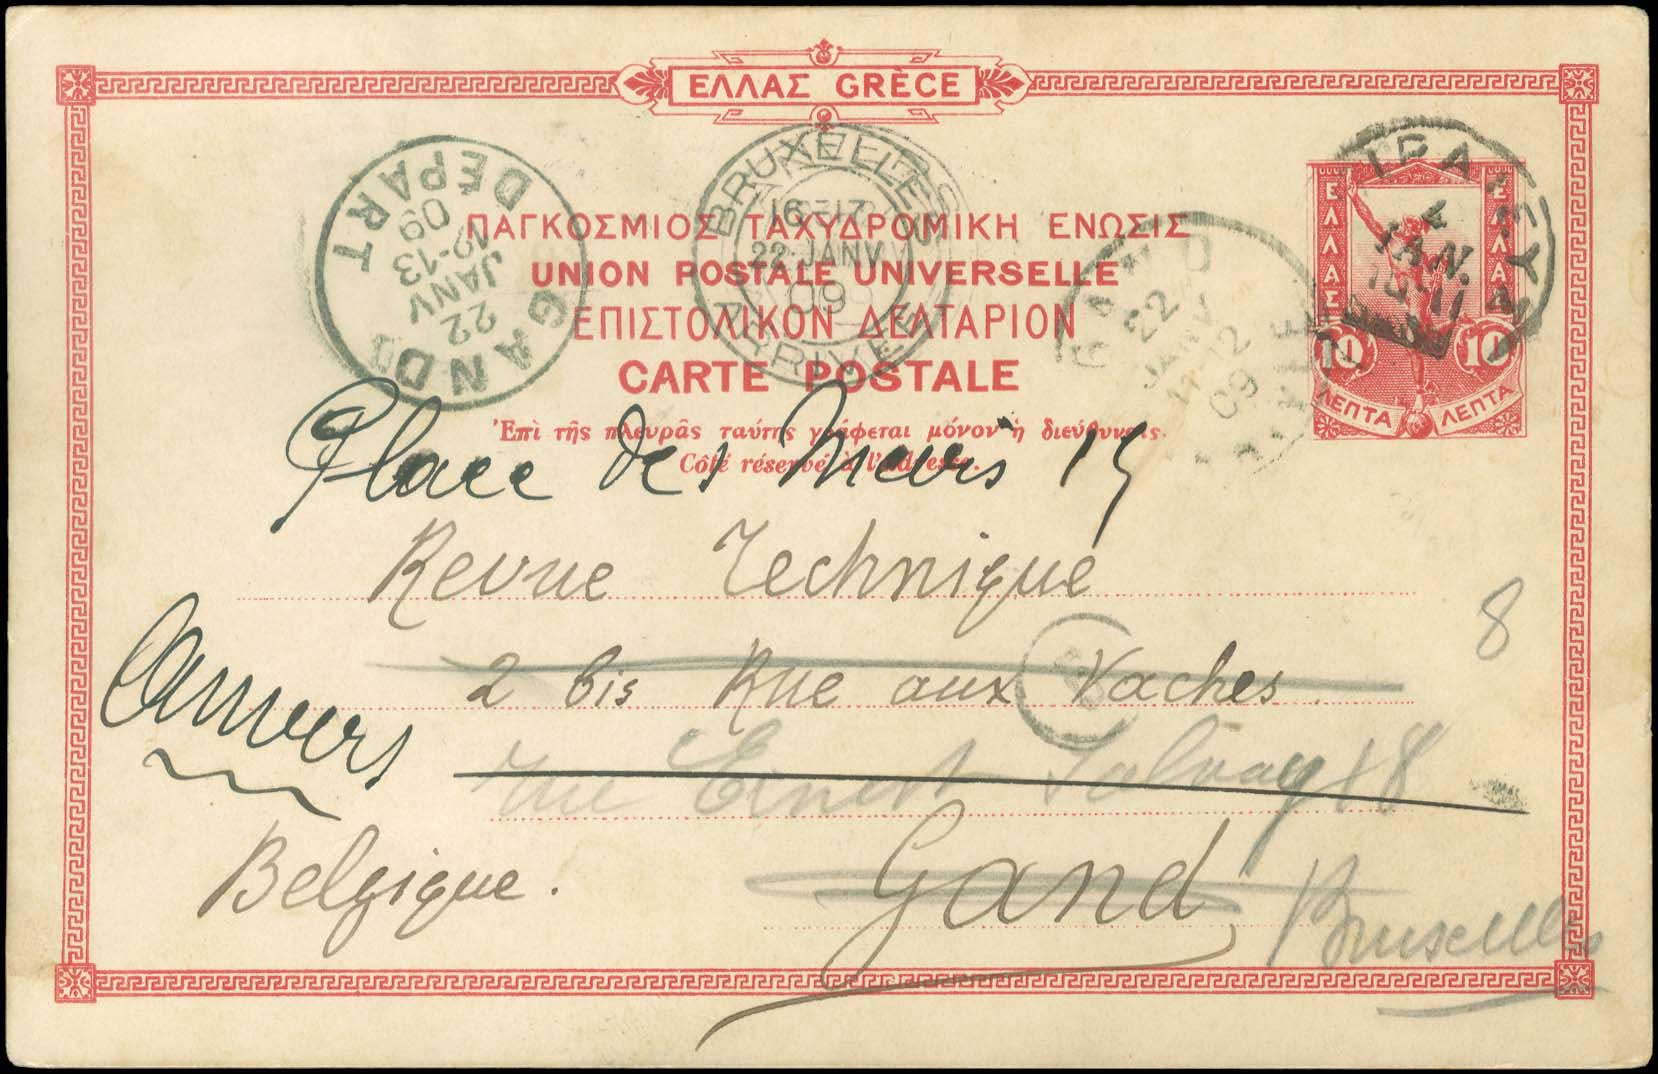 ΕΛΛΑΣ GRÈCE
ΠΑΓΚΟΣΜΙΟΣ ΤΑΧΥΔΡΟΜΙΚΗ ΕΝΩΣΙΣ
UNION POSTALE UNIVERSELLE
ΕΠΙΣΤΟΛΙΚΟΝ ΔΕΛΤΑΡΙΟΝ
CARTE POSTALE
Ἐπὶ τῆς πλευρᾶς ταύτης γράφεται μόνον ἡ διεύθυνσις.
Côté réservé à l'adresse.
GAND DÉPART
22
JANV
12-13
09
BRUXELLES
16-17
22 JANV
09
ARRIVEE
22
JANV
09
4
ΙΑΝ.
ΕΛΛΑΣ ΕΛΛΑΣ
10 10
ΛΕΠΤΑ ΛΕΠΤΑ
Place de 15
Revue Technique
8
2 bis Rue aux Vaches.
Anvers
rue Ernest Solvay 18
Belgique.
Gand
Bruxelles